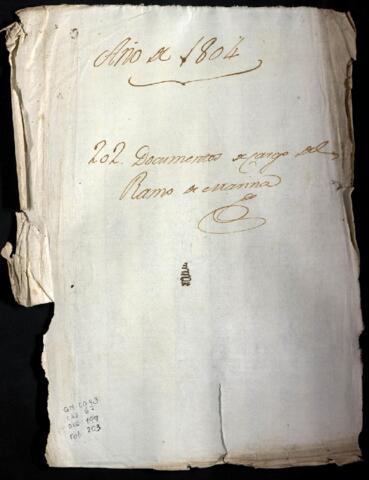 Año de 1804
202. Documentos de cargo del
Ramo de Marina
GM-CO 43
CAJ 62
DOC 199
Fol. 203